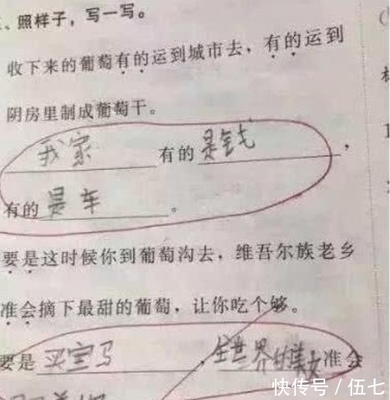 、照样子，写一写。
收下来的葡萄有的运到城市去，有的运到
阴房里制成葡萄干。
我家 有的 是钱 ，
有的 是车 。
要是这时候你到葡萄沟去，维吾尔族老乡
准会摘下最甜的葡萄，让你吃个够。
要是 买宝马 ，全世界的美女 准会
快传号/伍七